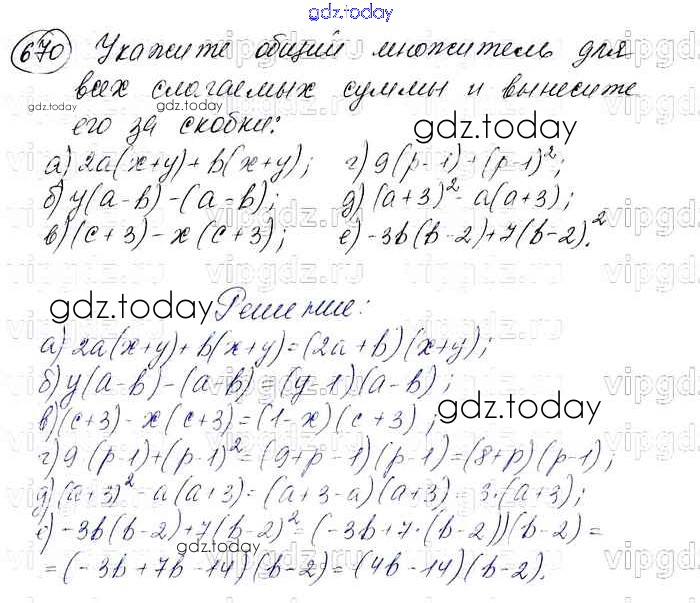 gdz.today
670 Укажите общий множитель для
всех слагаемых суммы и вынесите
gdz.today
его за скобки:
gdz.today
а) 2a(x+y)+b(x+y); г) 9(p-1)+(p-1)²;
б) y(a-b)-(a-b); д) (a+3)²-a(a+3);
в) (c+3)-x(c+3); е) -3b(b-2)+7(b-2)².
gdz.today Решение:
а) 2a(x+y)+b(x+y)=(2a+b)(x+y);
б) y(a-b)-(a-b)=(y-1)(a-b);
в) (c+3)-x(c+3)=(1-x)(c+3);
gdz.today
г) 9(p-1)+(p-1)²=(9+p-1)(p-1)=(8+p)(p-1);
д) (a+3)²-a(a+3)=(a+3-a)(a+3)=3·(a+3);
е) -3b(b-2)+7(b-2)²=(-3b+7·(b-2))(b-2)=
gdz.today
=(-3b+7b-14)(b-2)=(4b-14)(b-2).